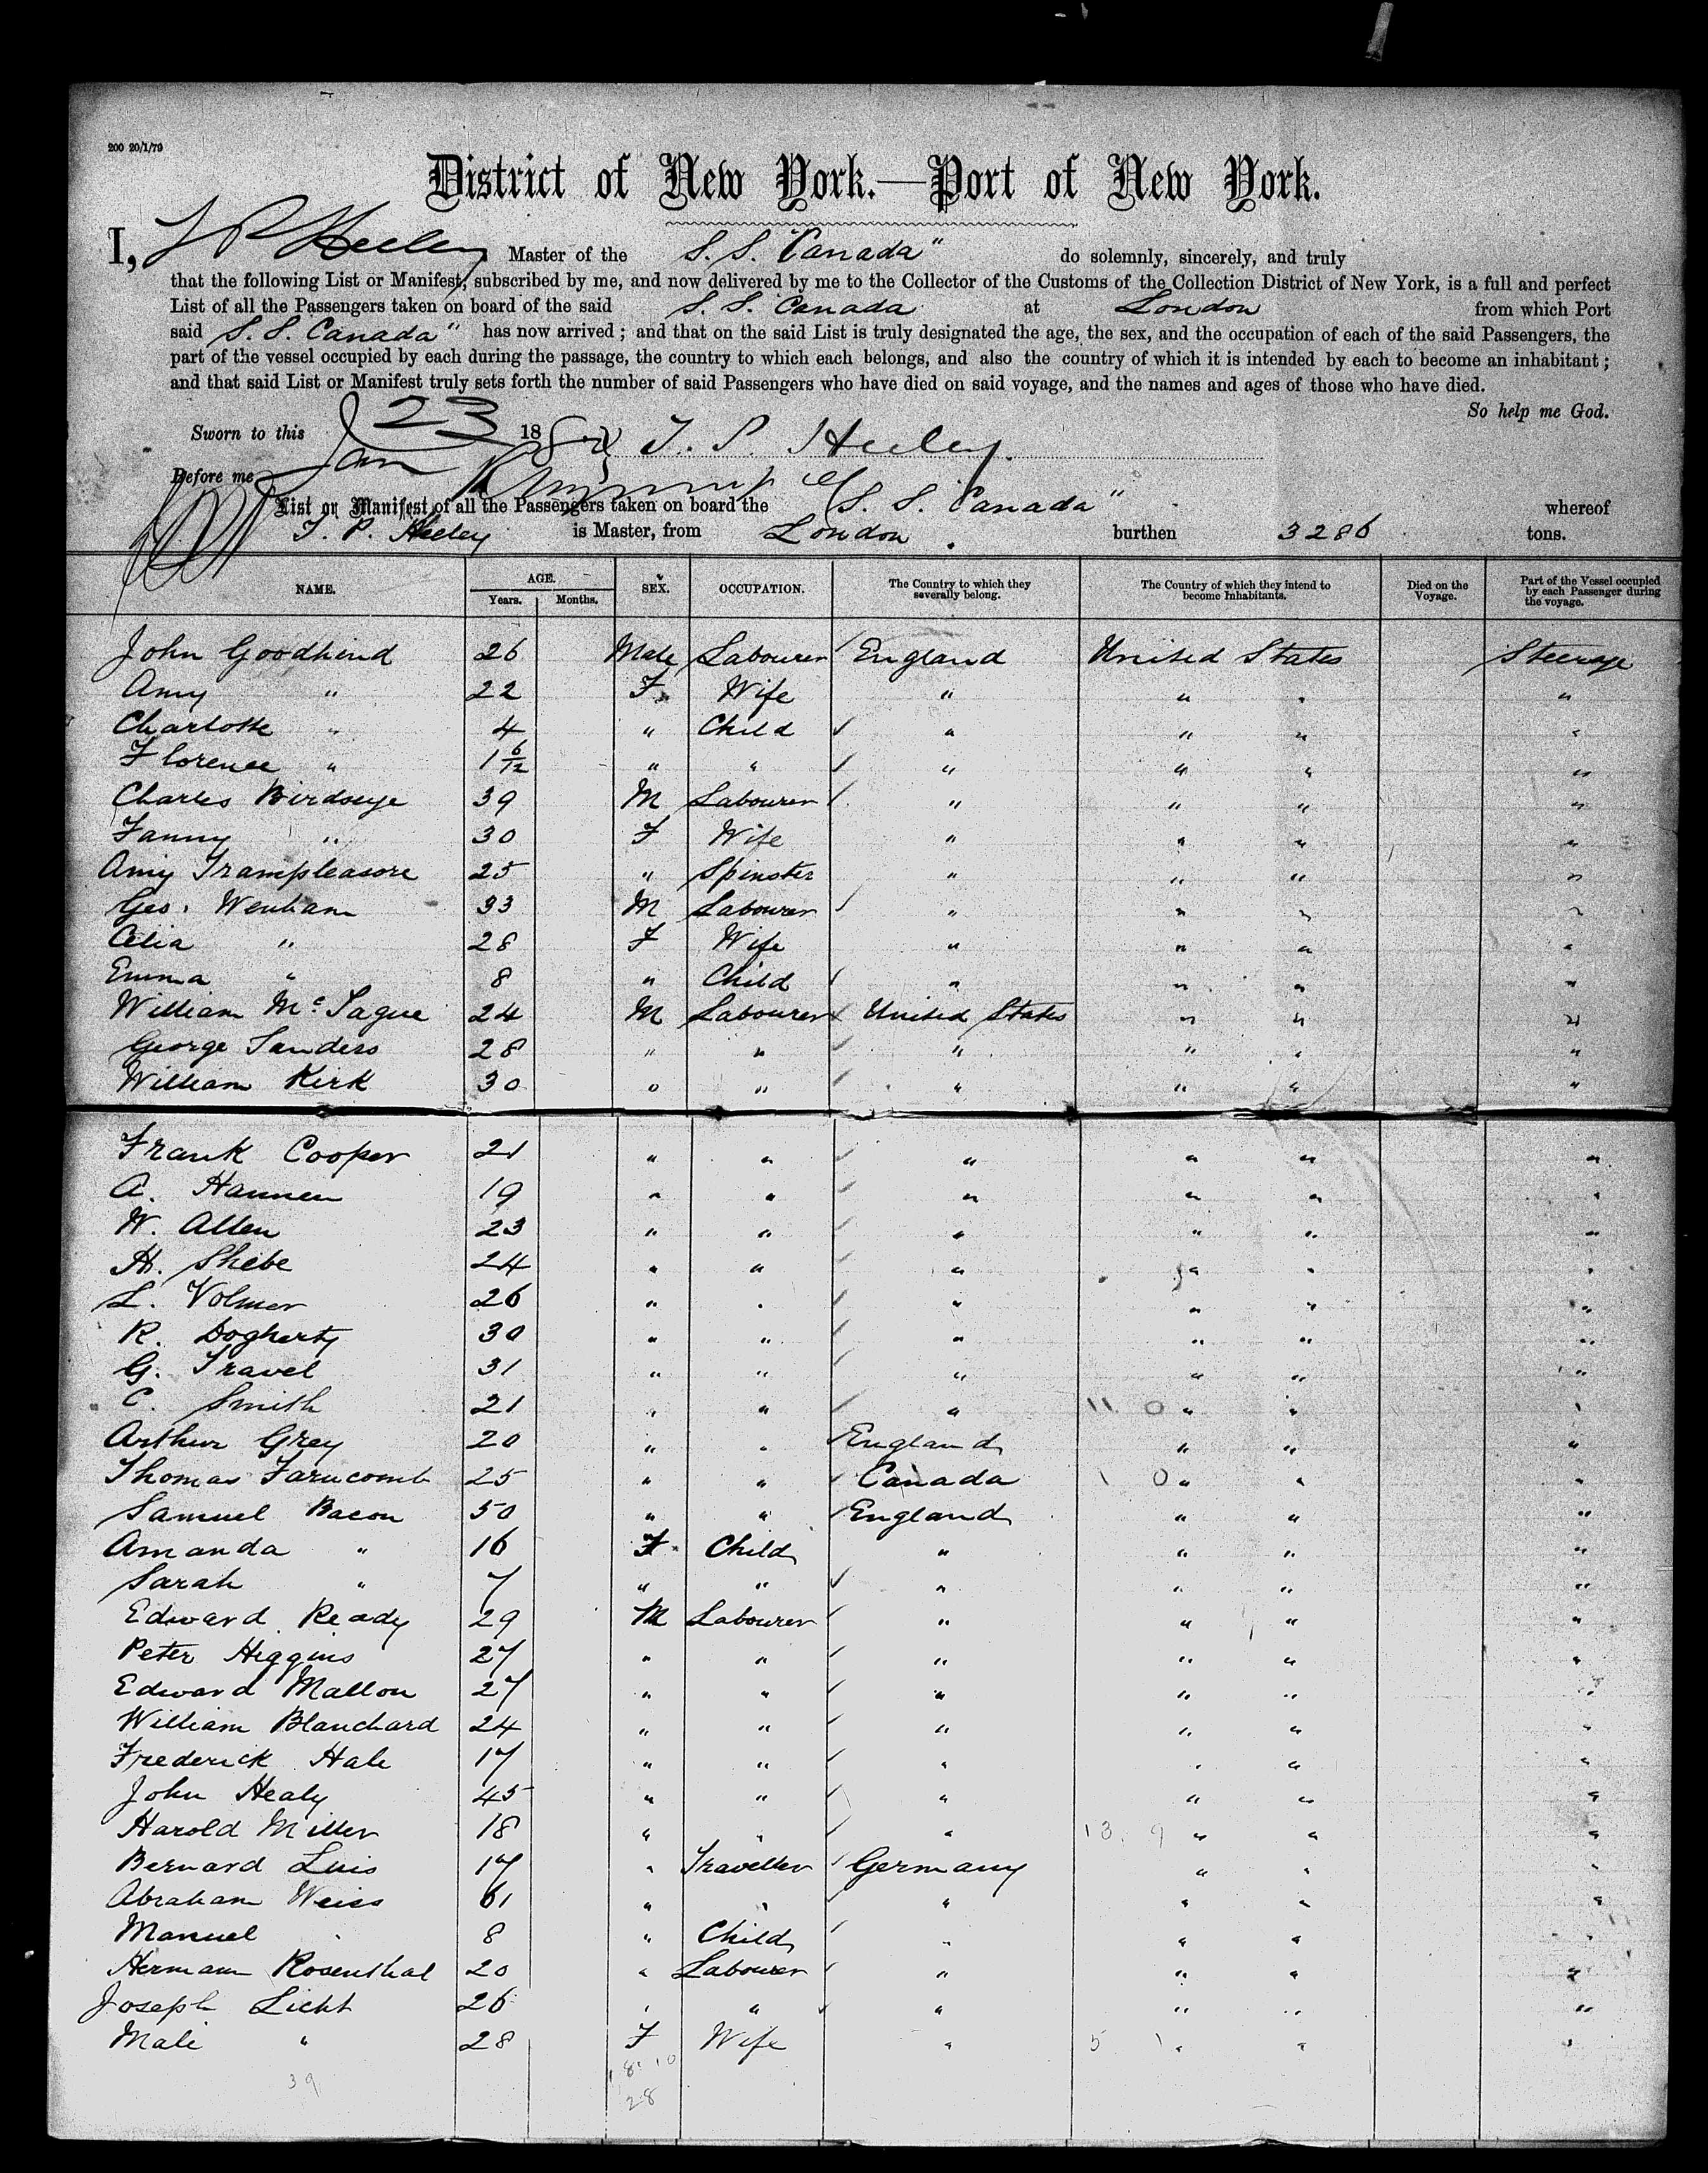 200 20/1/79
District of New York.—Port of New York.
I, T P Heeley Master of the S. S. "Canada" do solemnly, sincerely, and truly
that the following List or Manifest, subscribed by me, and now delivered by me to the Collector of the Customs of the Collection District of New York, is a full and perfect
List of all the Passengers taken on board of the said S. S. Canada at London from which Port
said S. S. Canada" has now arrived ; and that on the said List is truly designated the age, the sex, and the occupation of each of the said Passengers, the
part of the vessel occupied by each during the passage, the country to which each belongs, and also the country of which it is intended by each to become an inhabitant ;
and that said List or Manifest truly sets forth the number of said Passengers who have died on said voyage, and the names and ages of those who have died.
So help me God.
Sworn to this 23 Jan 188 T. P. Heeley.
Before me
List or Manifest of all the Passengers taken on board the S. S. Canada" whereof
T. P. Heeley is Master, from London. burthen 3286 tons.
NAME. AGE. Years. Months. SEX. OCCUPATION. The Country to which they severally belong. The Country of which they intend to become Inhabitants. Died on the Voyage. Part of the Vessel occupied by each Passenger during the voyage.
John Goodhind 26 Male Labourer England United States Steerage
Amy " 22 F. Wife " " " "
Charlotte " 4 " Child " " " "
Florence " 1 6/12 " " " " " "
Charles Birdseye 39 M Labourer " " " "
Fanny " 30 F Wife " " " "
Amy Trampleasure 25 " Spinster " " " "
Geo. Wenham 33 M Labourer " " " "
Celia " 28 F Wife " " " "
Emma " 8 " Child " " " "
William Mc Tague 24 M Labourer United States " " "
George Sanders 28 " " " " " "
William Kirk 30 " " " " " "
Frank Cooper 21 " " " " " "
A. Hannen 19 " " " " " "
W. Allen 23 " " " " " "
H. Shebe 24 " " " " " "
L. Volmer 26 " " " " " "
R. Dogherty 30 " " " " " "
G. Travel 31 " " " " " "
C. Smith 21 " " " 11. 0 " " "
Arthur Grey 20 " " England " " "
Thomas Farncomb 25 " " Canada 1 0 " " "
Samuel Bacon 50 " " England " " "
Amanda " 16 F. Child " " " "
Sarah " 7 " " " " " "
Edward Ready 29 M Labourer " " " "
Peter Higgins 27 " " " " " "
Edward Mallon 27 " " " " " "
William Blanchard 24 " " " " " "
Frederick Hale 17 " " " " " "
John Healy 45 " " " " " "
Harold Miller 18 " " " 13. 9 " " "
Bernard Luis 17 " Traveller Germany " " "
Abraham Weiss 61 " " " " " "
Manuel " 8 " Child " " " "
Hermann Rosenthal 20 " Labourer " " " "
Joseph Licht 26 " " " " " "
Male " 28 F Wife " 5 1 " " "
39 18. 10
28